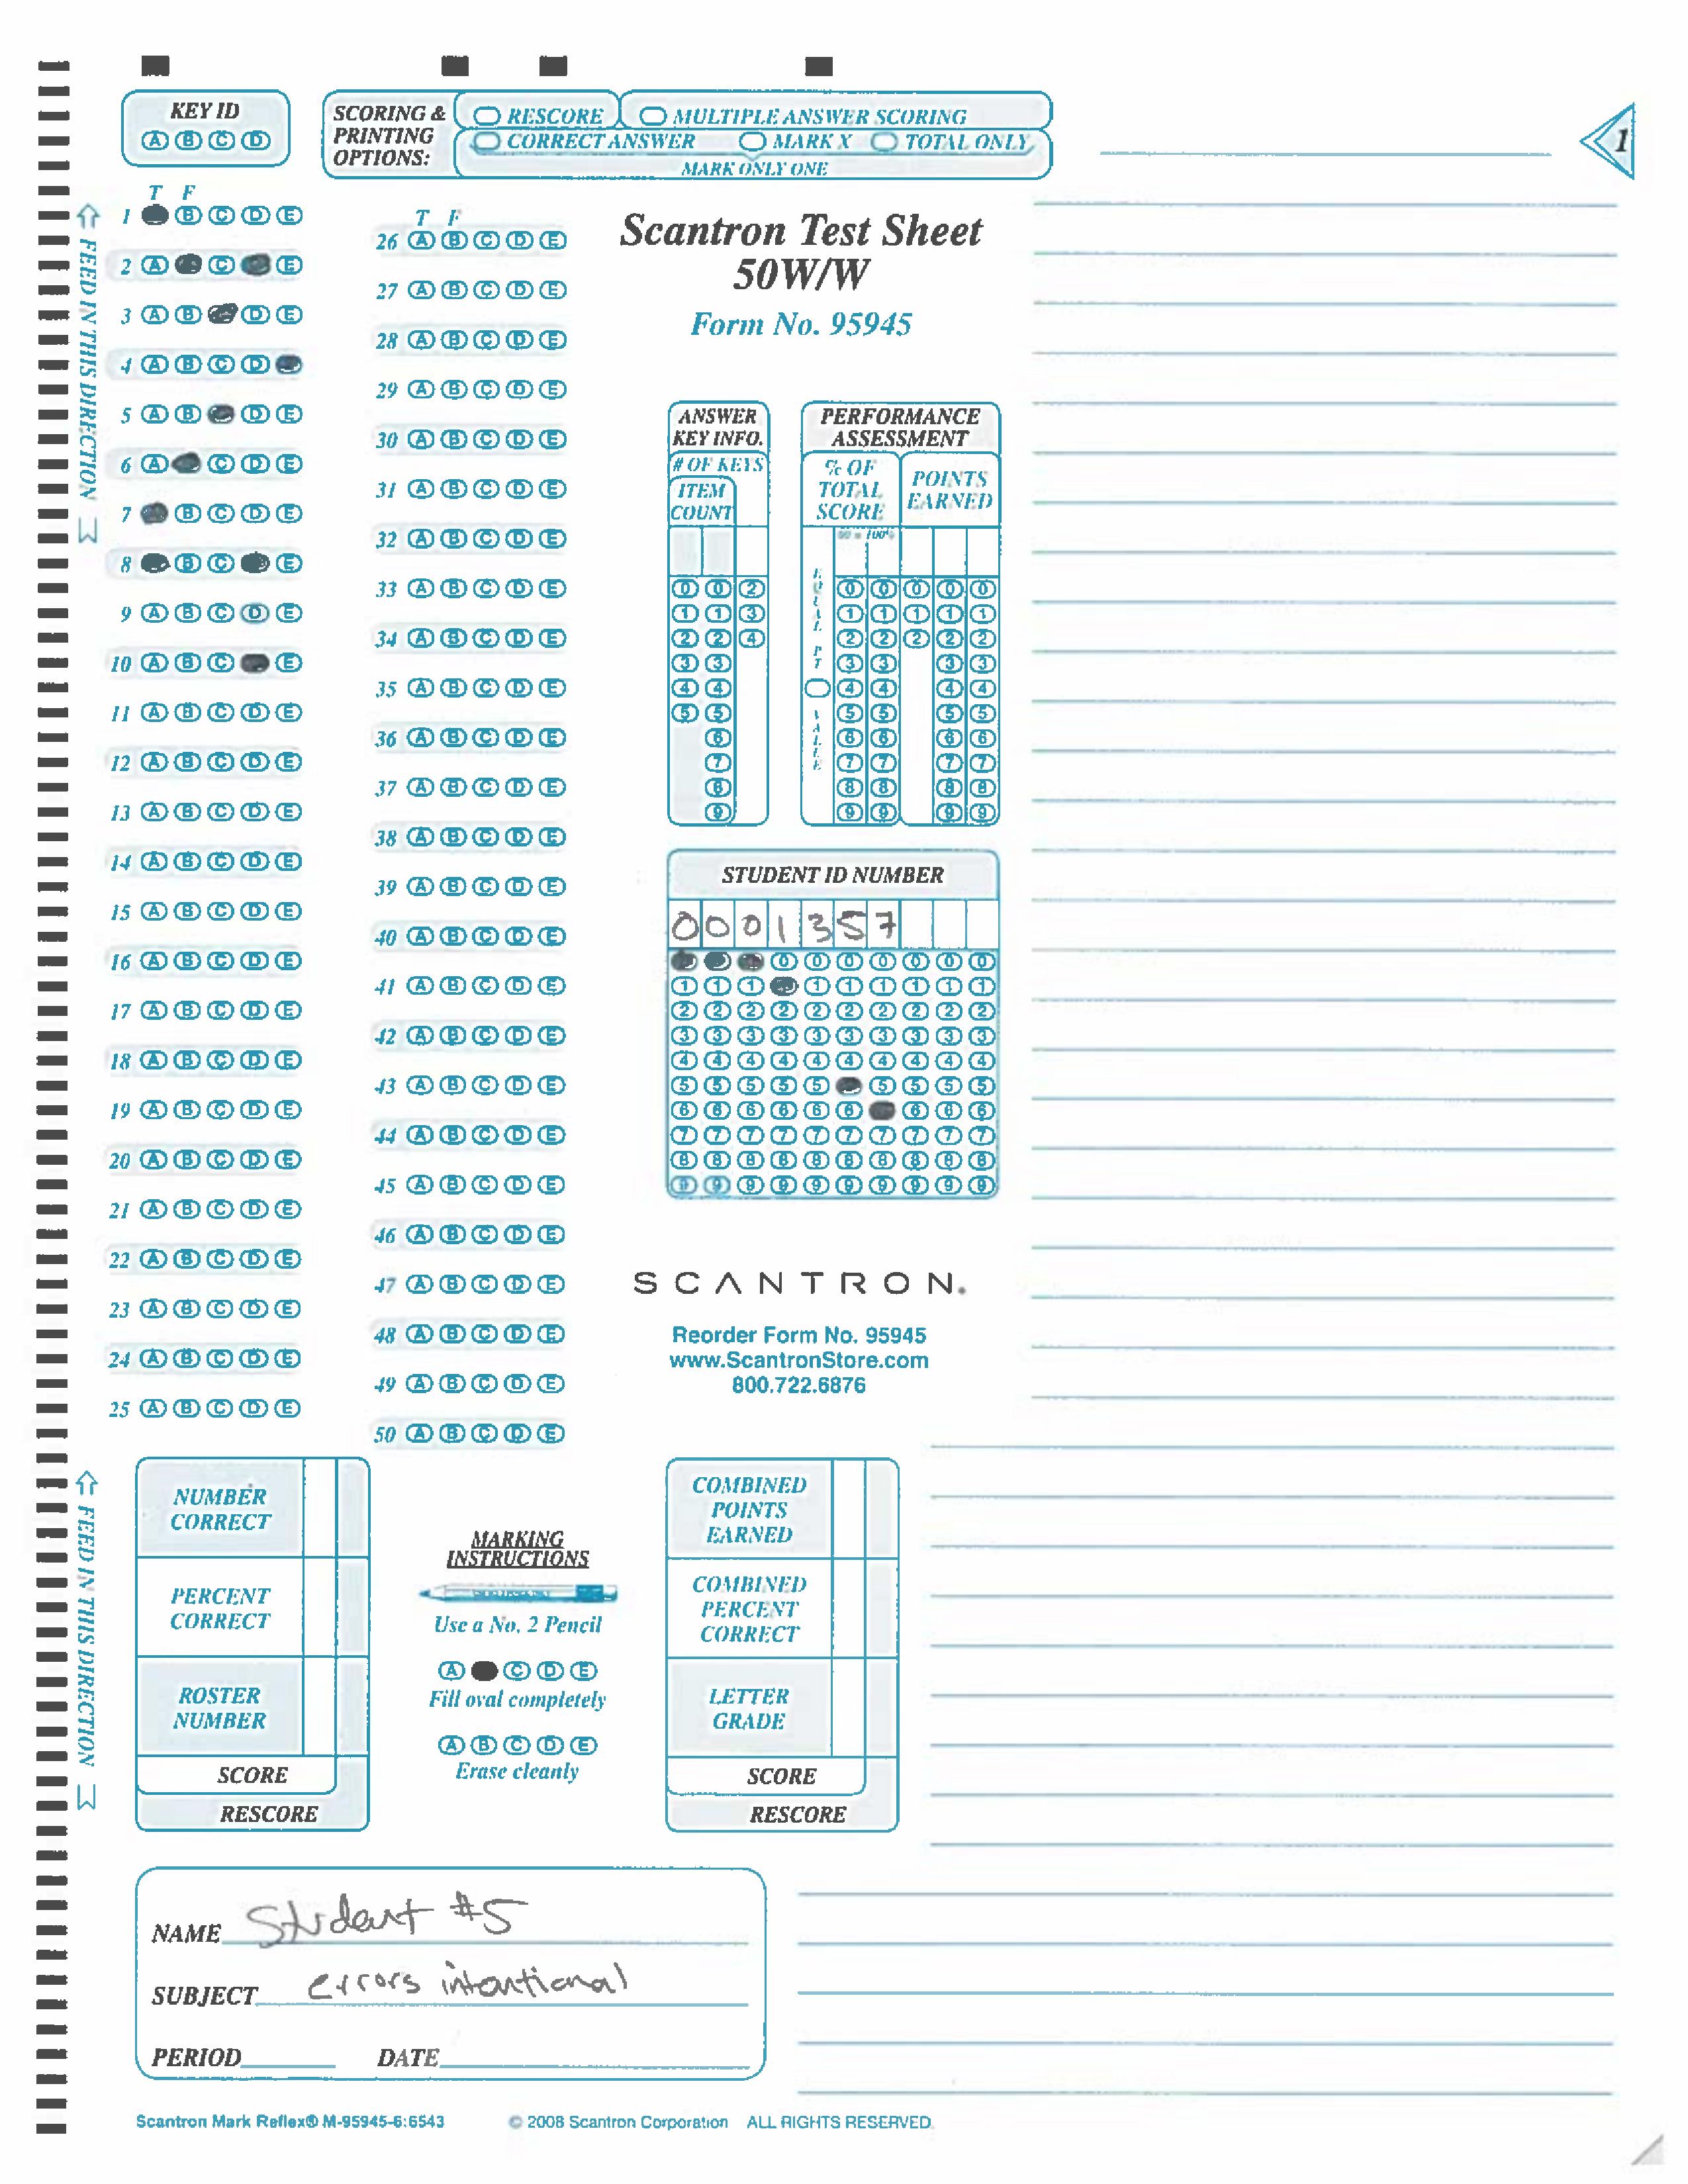 KEY ID
A B C D
SCORING & PRINTING OPTIONS:
RESCORE MULTIPLE ANSWER SCORING
CORRECT ANSWER MARK X TOTAL ONLY
MARK ONLY ONE
1
FEED IN THIS DIRECTION
T F
1 B C D E
2 A C E
3 A B D E
4 A B C D
5 A B D E
6 A C D E
7 B C D E
8 B C E
9 A B C D E
10 A B C E
11 A B C D E
12 A B C D E
13 A B C D E
14 A B C D E
15 A B C D E
16 A B C D E
17 A B C D E
18 A B C D E
19 A B C D E
20 A B C D E
21 A B C D E
22 A B C D E
23 A B C D E
24 A B C D E
25 A B C D E
T F
26 A B C D E
27 A B C D E
28 A B C D E
29 A B C D E
30 A B C D E
31 A B C D E
32 A B C D E
33 A B C D E
34 A B C D E
35 A B C D E
36 A B C D E
37 A B C D E
38 A B C D E
39 A B C D E
40 A B C D E
41 A B C D E
42 A B C D E
43 A B C D E
44 A B C D E
45 A B C D E
46 A B C D E
47 A B C D E
48 A B C D E
49 A B C D E
50 A B C D E
Scantron Test Sheet
50W/W
Form No. 95945
ANSWER
KEY INFO.
# OF KEYS
ITEM
COUNT
0 0 2
1 1 3
2 2 4
3 3
4 4
5 5
6
7
8
9
PERFORMANCE
ASSESSMENT
% OF
TOTAL
SCORE
POINTS
EARNED
00 = 100%
EQUAL PT VALUE
0 0 0 0 0
1 1 1 1 1
2 2 2 2 2
3 3 3 3
4 4 4 4
5 5 5 5
6 6 6 6
7 7 7 7
8 8 8 8
9 9 9 9
STUDENT ID NUMBER
0 0 0 1 3 5 7
0 0 0 0 0 0 0
1 1 1 1 1 1 1 1 1
2 2 2 2 2 2 2 2 2 2
3 3 3 3 3 3 3 3 3 3
4 4 4 4 4 4 4 4 4 4
5 5 5 5 5 5 5 5 5
6 6 6 6 6 6 6 6 6
7 7 7 7 7 7 7 7 7 7
8 8 8 8 8 8 8 8 8 8
9 9 9 9 9 9 9 9 9 9
SCANTRON.
Reorder Form No. 95945
www.ScantronStore.com
800.722.6876
FEED IN THIS DIRECTION
NUMBER
CORRECT
PERCENT
CORRECT
ROSTER
NUMBER
SCORE
RESCORE
MARKING
INSTRUCTIONS
Use a No. 2 Pencil
A C D E
Fill oval completely
A B C D E
Erase cleanly
COMBINED
POINTS
EARNED
COMBINED
PERCENT
CORRECT
LETTER
GRADE
SCORE
RESCORE
NAME Student #5
SUBJECT errors intentional
PERIOD DATE
Scantron Mark Reflex® M-95945-6:6543 © 2008 Scantron Corporation ALL RIGHTS RESERVED.